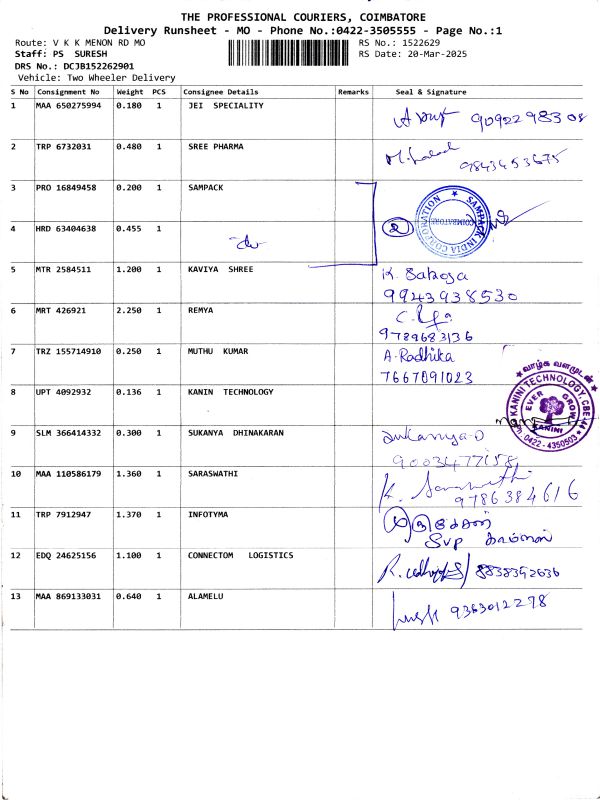 THE PROFESSIONAL COURIERS, COIMBATORE
Delivery Runsheet - MO - Phone No.:0422-3505555 - Page No.:1
Route: V K K MENON RD MO RS No.: 1522629
Staff: PS SURESH RS Date: 20-Mar-2025
DRS No.: DCJB152262901
Vehicle: Two Wheeler Delivery
S No Consignment No Weight PCS Consignee Details Remarks Seal & Signature
1 MAA 650275994 0.180 1 JEI SPECIALITY 9092298308
2 TRP 6732031 0.480 1 SREE PHARMA 9843453675
3 PRO 16849458 0.200 1 SAMPACK
SAMPACK INDIA CORPORATION
COIMBATORE
4 HRD 63404638 0.455 1 2
5 MTR 2584511 1.200 1 KAVIYA SHREE K.
9943938530
6 MRT 426921 2.250 1 REMYA
9789683136
7 TRZ 155714910 0.250 1 MUTHU KUMAR A. Radhika
7667091023
8 UPT 4092932 0.136 1 KANIN TECHNOLOGY
வாழ்க வளமுடன்
KANINI TECHNOLOGY, CBE-44
EVER GROW
KANINI
0422-4350503
9 SLM 366414332 0.300 1 SUKANYA DHINAKARAN Sukanya-D
9003477158
10 MAA 110586179 1.360 1 SARASWATHI K.
9786384616
11 TRP 7912947 1.370 1 INFOTYMA
SVP
12 EDQ 24625156 1.100 1 CONNECTOM LOGISTICS R. 8838392636
13 MAA 869133031 0.640 1 ALAMELU 9363012278